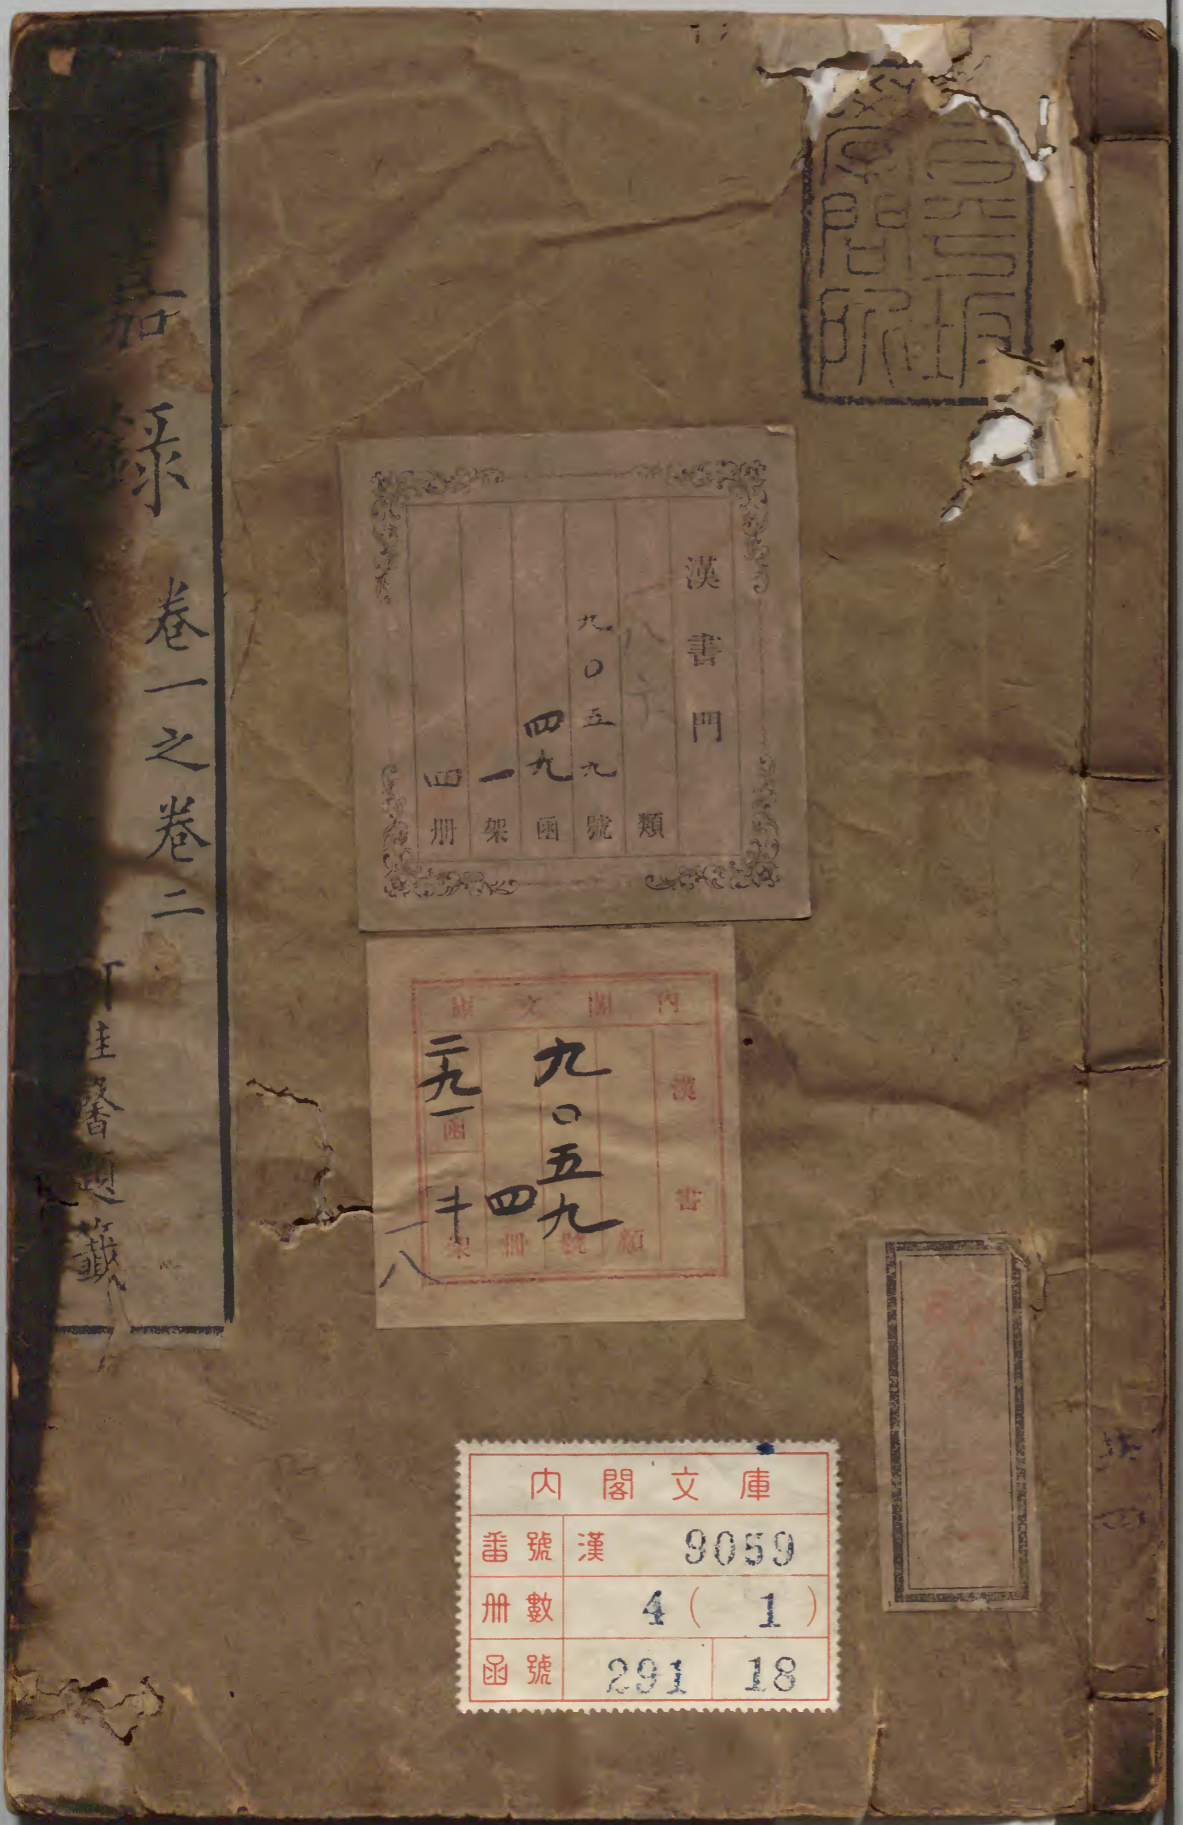 嘉錄 卷一之卷二
桂馨題籤
昌平坂
學問所
漢書門
類
九〇五九號
四九函
一架
四册
內閣文庫
漢書
類
九〇五九號
四册
二九一函
架
一八
內閣文庫
番號 漢 9059
册數 4 ( 1 )
函號 291 18